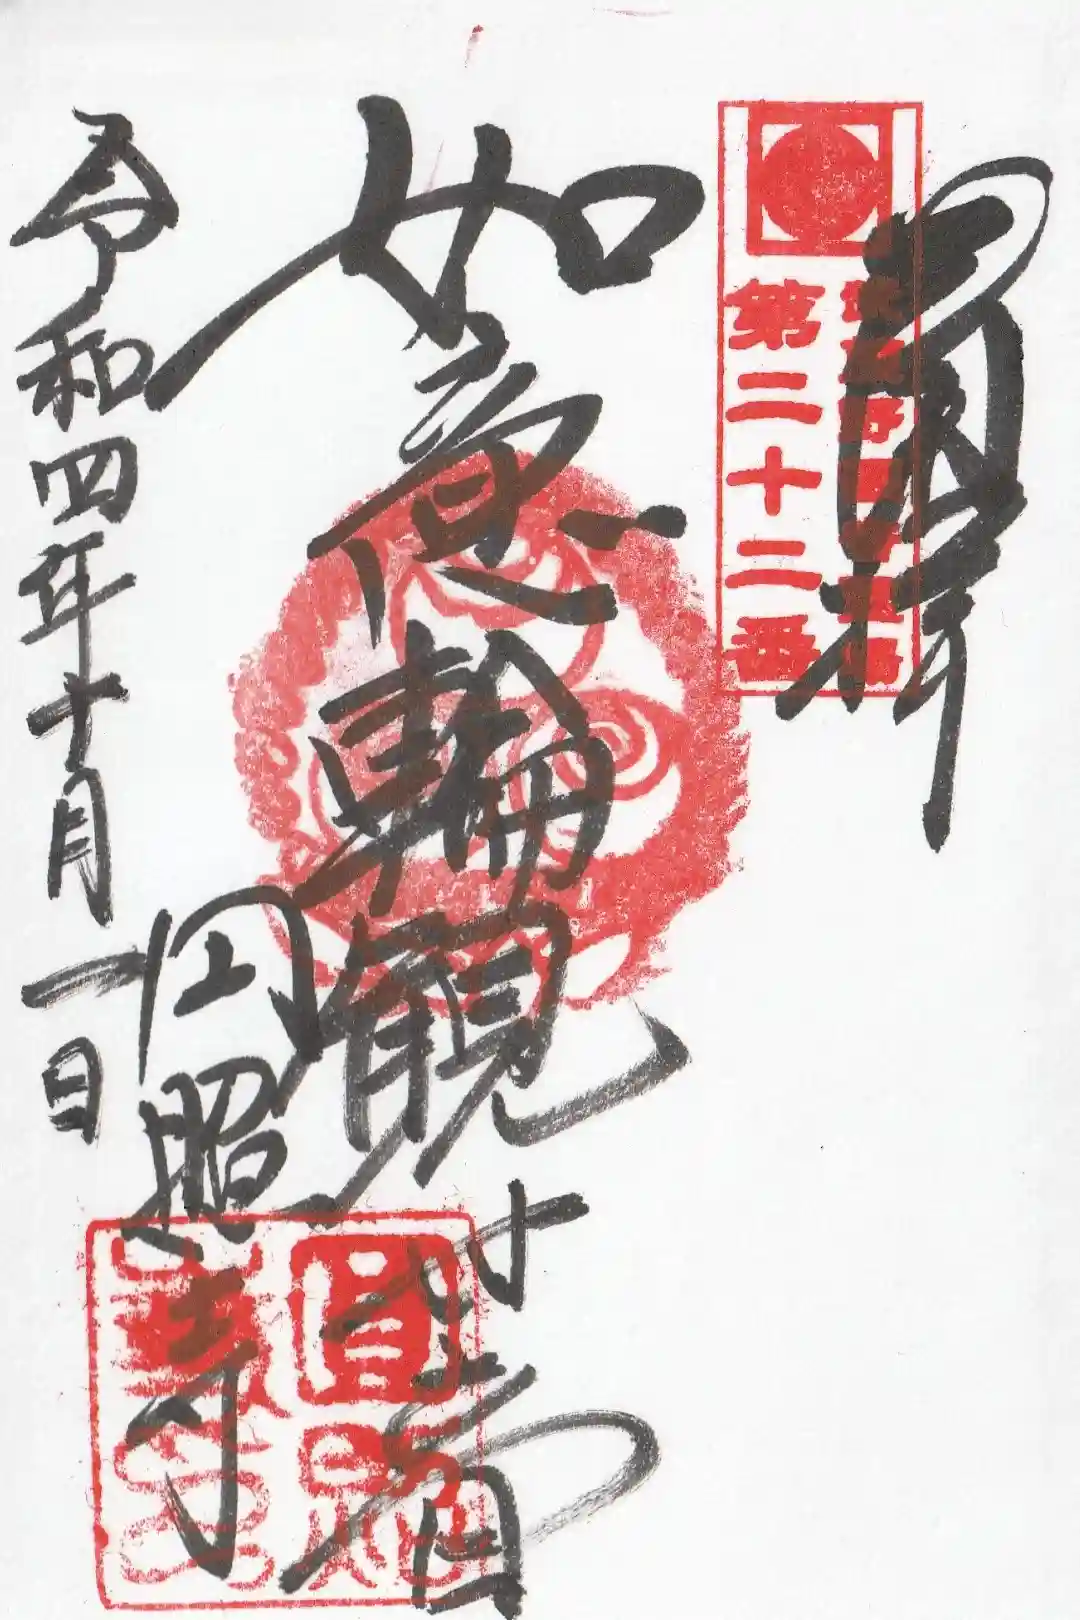 奉拝
第二十二番
如意輪観世音
円照寺
令和四年十月一日